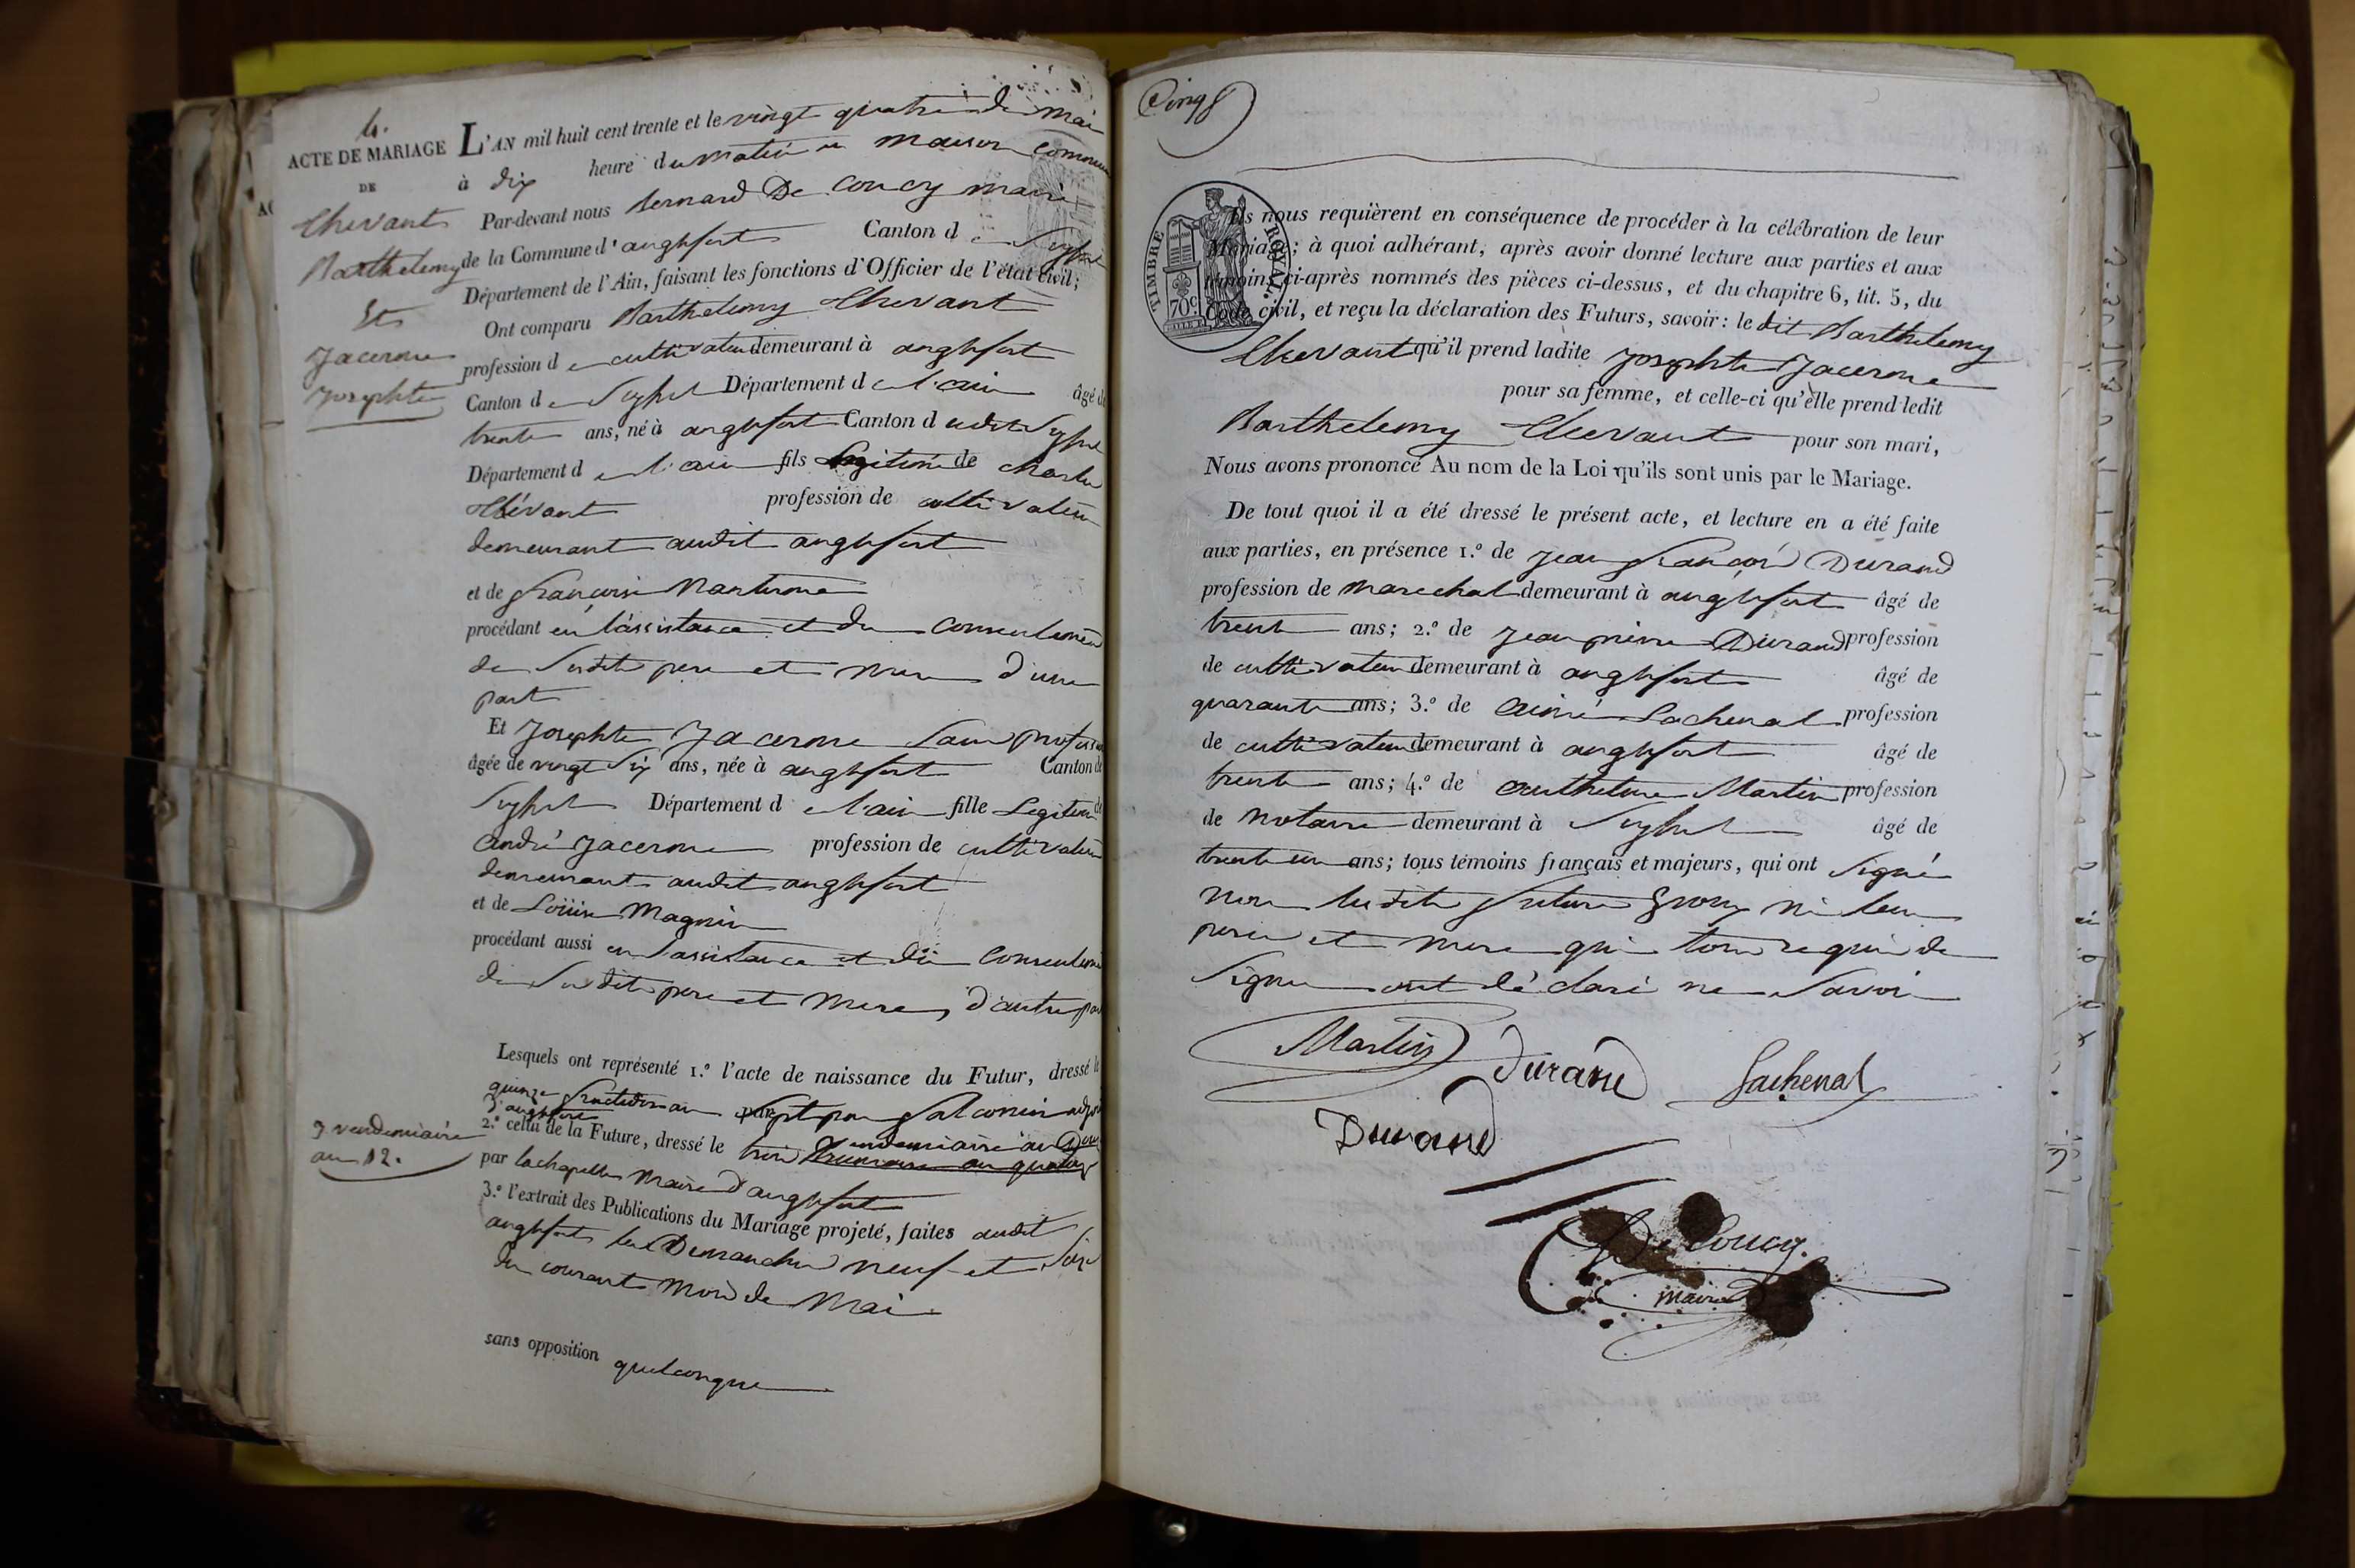 4.
ACTE DE MARIAGE
DE
Chevant
Barthelemy
Et
Jacerme
Josephte
L'AN mil huit cent trente et le vingt quatre de mai
à dix heure du matin en maison commune
Par-devant nous Bernard De Coucy maire
de la Commune d'anglefort Canton de Seyssel
Département de l'Ain, faisant les fonctions d'Officier de l'état civil;
Ont comparu Barthelemy Chevant
profession de cultivateur demeurant à anglefort
Canton de Seyssel Département de l'ain âgé de
trente ans, né à anglefort Canton dudit Seyssel
Département de l'ain fils Legitime de Charles
Chévant profession de cultivateur
demeurant audit anglefort
et de françoise Nanterme
procédant en l'assistance et du consentement
de Susdits pere et mere d'une
part
Et Josephte Jacerme Sans profession
âgée de vingt Six ans, née à anglefort Canton de
Seyssel Département de l'ain fille Legitime de
andré Jacerme profession de cultivateur
demeurant audit anglefort
et de Loüise Magnin
procédant aussi en l'assistance et du consentement
de Susdits pere et mere, d'autre part
Lesquels ont représenté 1.º l'acte de naissance du Futur, dressé le
quinze fructidor an Sept par falconnin adjoint
d'anglefort
2.º celui de la Future, dressé le trois vendemiaire an Douze
brumaire an quatorze
3 vendemiaire
an 12.
par lachapelle maire d'anglefort
3.º l'extrait des Publications du Mariage projeté, faites audit
anglefort les Dimanches neuf et Seize
du courant mois de Mai
sans opposition quelconque
Cinq
TIMBRE ROYAL.
70 c.
Ils nous requièrent en conséquence de procéder à la célébration de leur
Mariage; à quoi adhérant, après avoir donné lecture aux parties et aux
témoins ci-après nommés des pièces ci-dessus, et du chapitre 6, tit. 5, du
Code civil, et reçu la déclaration des Futurs, savoir: le dit Barthelemy
Chevant qu'il prend ladite Josephte Jacerme
pour sa femme, et celle-ci qu'elle prend ledit
Barthelemy Chevant pour son mari,
Nous avons prononcé Au nom de la Loi qu'ils sont unis par le Mariage.
De tout quoi il a été dressé le présent acte, et lecture en a été faite
aux parties, en présence 1.º de Jean françois Durand
profession de marechal demeurant à anglefort âgé de
trente ans; 2.º de Jean pierre Durand profession
de cultivateur demeurant à anglefort âgé de
quarante ans; 3.º de aimé Lachenal profession
de cultivateur demeurant à anglefort âgé de
trente ans; 4.º de anthelme Martin profession
de notaire demeurant à Seyssel âgé de
trente un ans; tous témoins français et majeurs, qui ont Signé
non lesdits futurs Epoux ni leur
peres et mere qui tous requis de
Signer ont déclaré ne Savoir
Martin Durand Lachenal
Durand
De Coucy.
maire